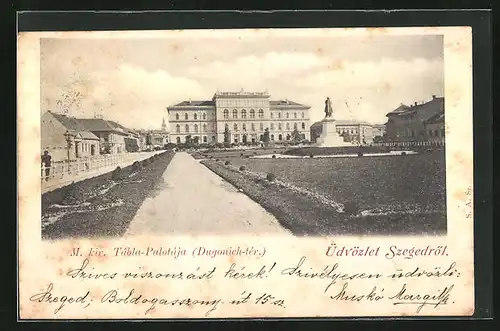 M. kir. Tábla-Palotája (Dugonich-tér.)
Üdvözlet Szegedről.
S. A. Sz.
Szives viszonzást kérek! Szivélyesen üdvözli:
Szeged, Boldogasszony út 15 sz. Muskó Margith